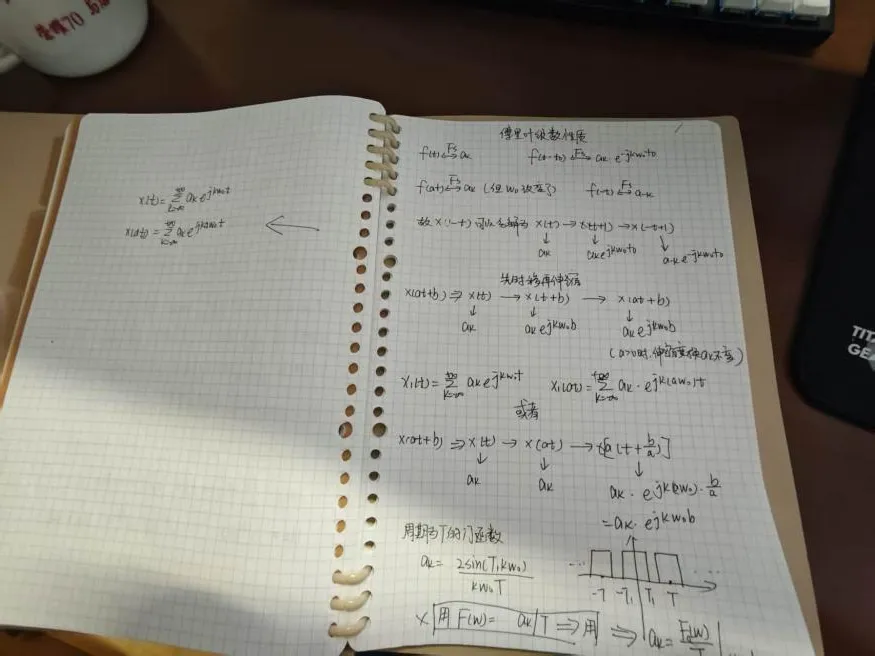 x(t)=∑_{k=-∞}^{+∞} aₖe^{jkw₀t}
x(at)=∑_{k=-∞}^{+∞} aₖe^{jkaw₀t}
傅里叶级数性质
f(t) ⟷FS aₖ f(t-t₀) ⟷FS aₖ·e^{-jkw₀t₀}
f(at) ⟷FS aₖ (但w₀改变了) f(-t) ⟷FS a₋ₖ
故x(1-t)可以 x(t) → x(t+1) → x(-t+1)
↓ ↓ ↓
aₖ aₖe^{jkw₀t₀} a₋ₖe^{-jkw₀t₀}
先时移再伸缩
x(at+b) ⇒ x(t) → x(t+b) → x(at+b)
↓ ↓ ↓
aₖ aₖe^{jkw₀b} aₖe^{jkw₀b}
(a>0时,伸缩变换aₖ不变)
x₁(t)=∑_{k=-∞}^{+∞} aₖe^{jkw₀t} x₁(at)=∑_{k=-∞}^{+∞} aₖ·e^{jk(aw₀)t}
或者
x(at+b) ⇒ x(t) → x(at) → x[a(t+b/a)]
↓ ↓ ↓
aₖ aₖ aₖ·e^{jk(aw₀)·b/a}
=aₖ·e^{jkw₀b}
周期为T的门函数
aₖ= 2sin(T₁kw₀)/kw₀T
… …
-T -T₁ T₁ T
× 用F(w)= aₖ/T ⇒ 用 ⇒ aₖ= F(w)/T
TITA
GE